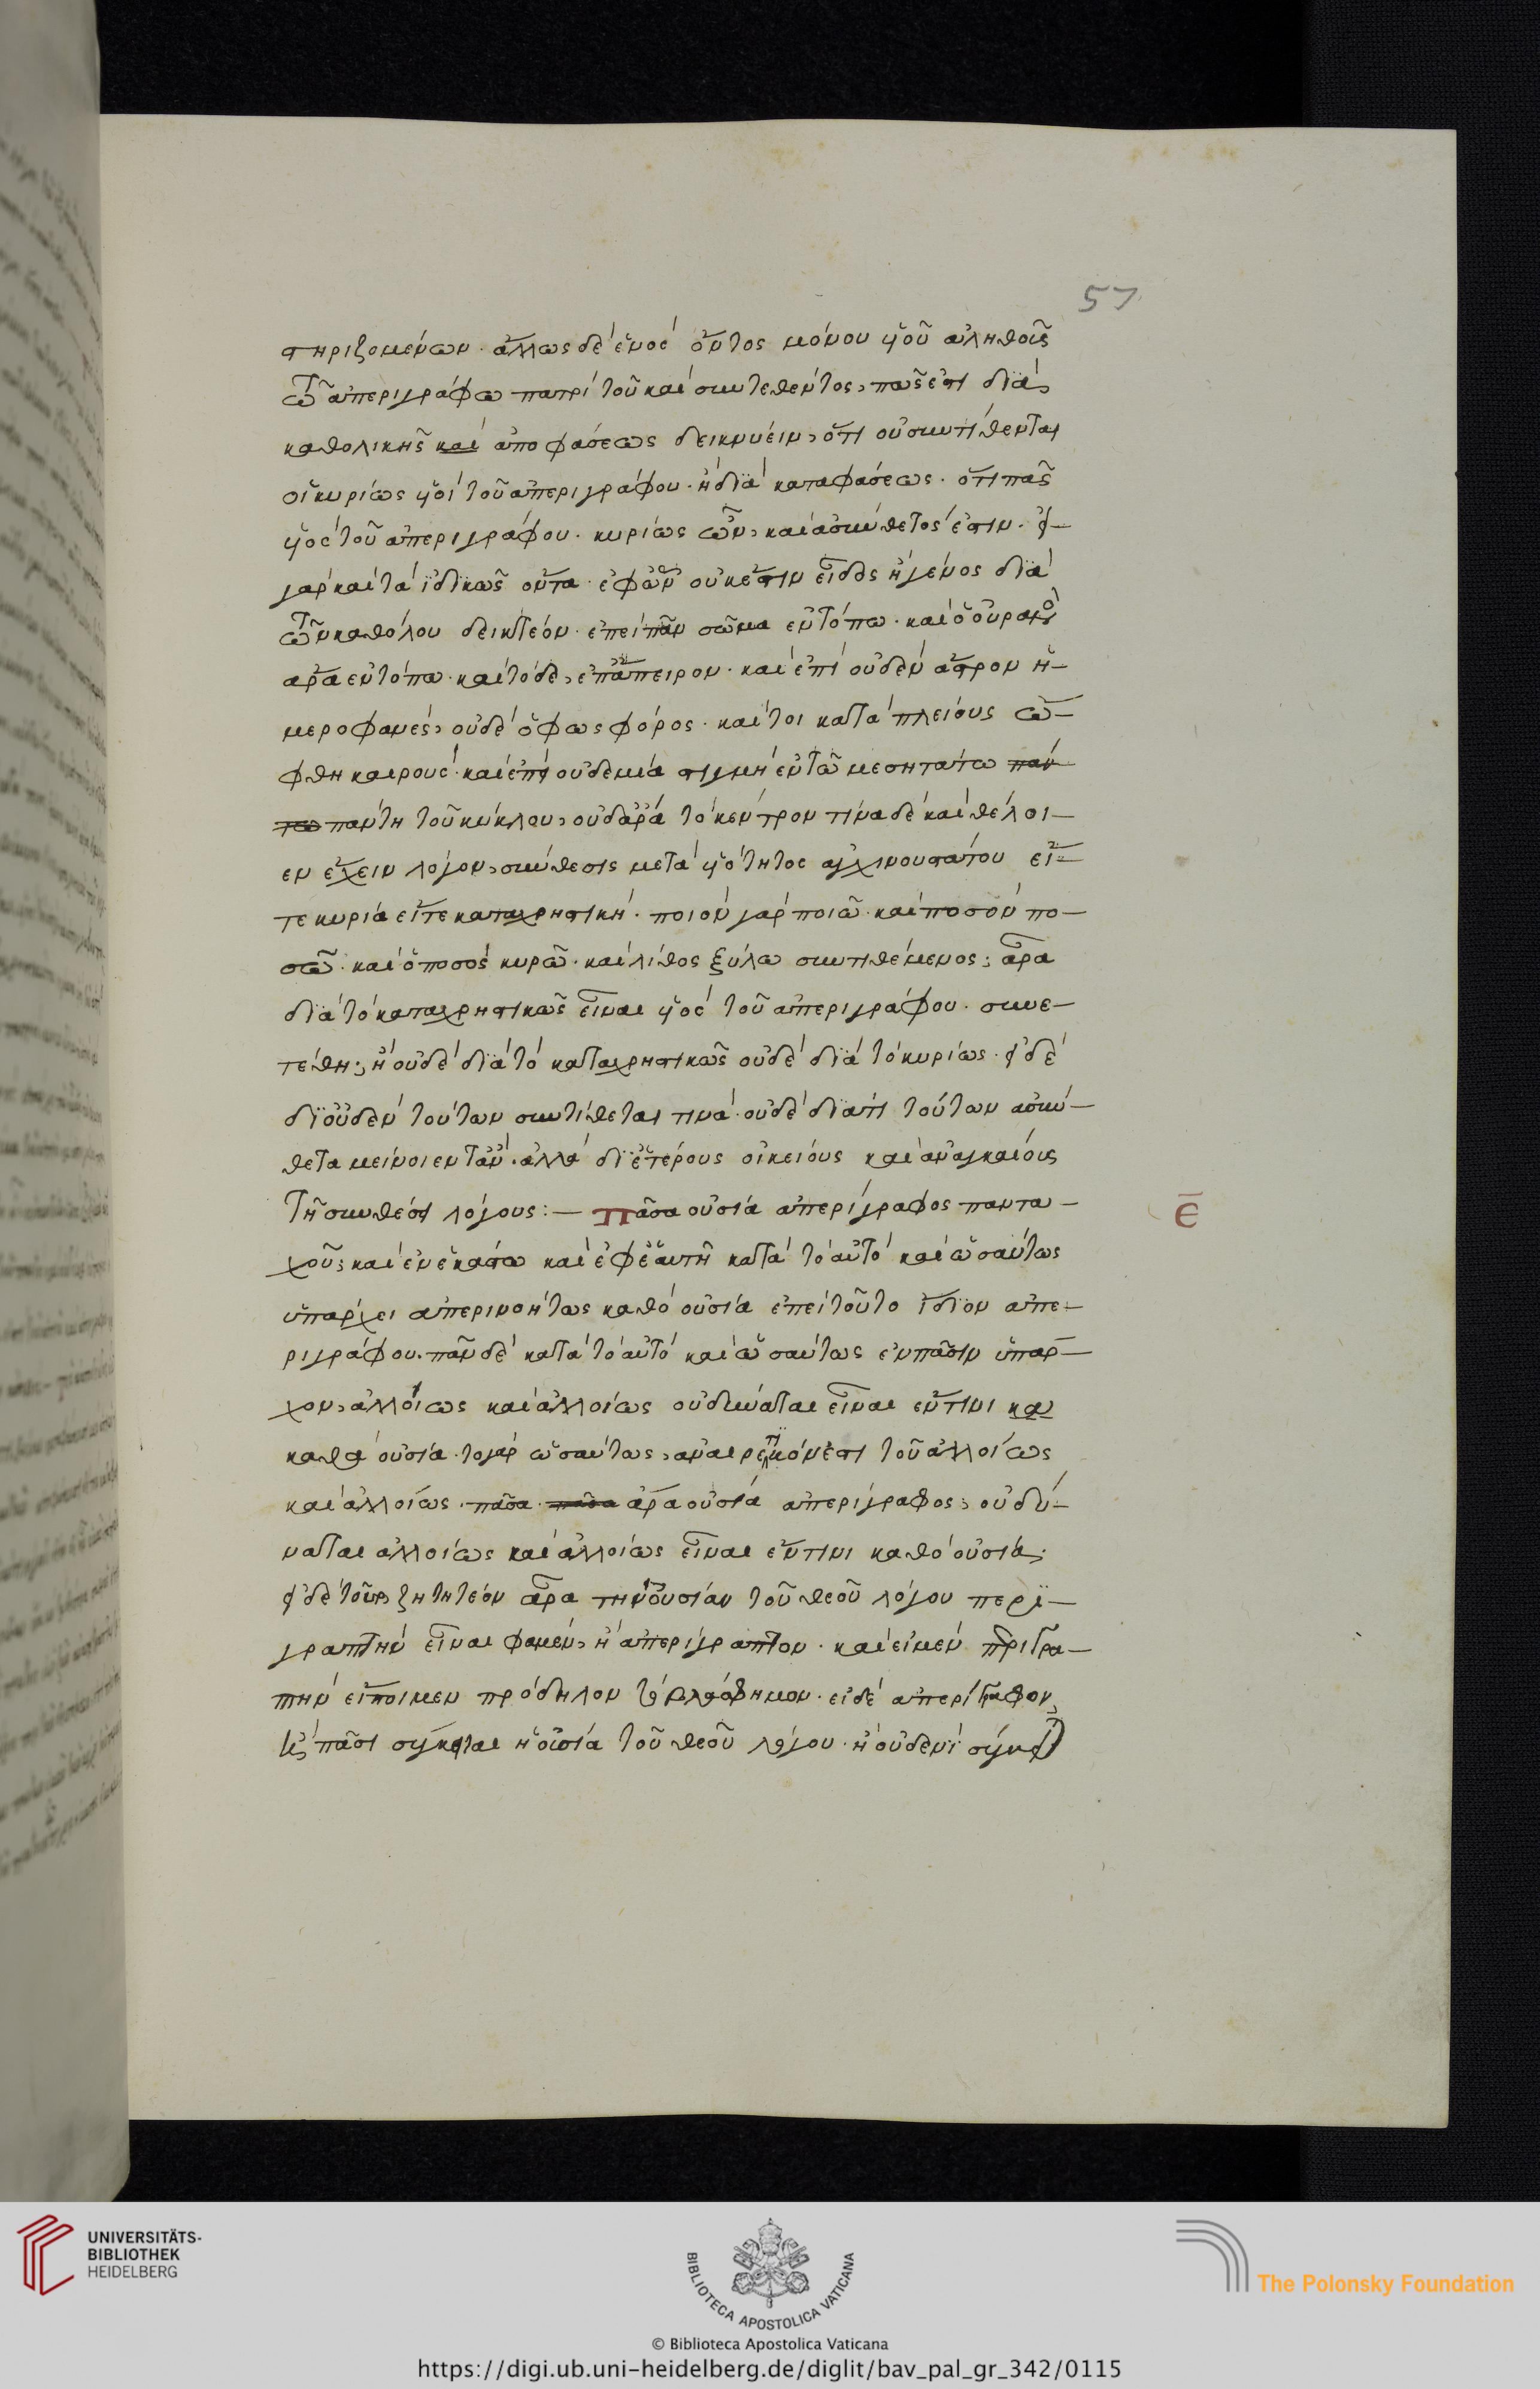 57
στηριζομένων. ἄλλως δὲ ἑνὸς ὄντος μόνου υἱοῦ ἀληθοῦς
τῶ ἀπεριγράφω πατρὶ τοῦ καὶ συντεθέντος, πῶς ἐστι διὰ
καθολικῆς καὶ ἀποφάσεως δεικνύειν, ὅτι οὐ συντίθενται
οἱ κυρίως υἱοὶ τοῦ ἀπεριγράφου. ἢ διὰ καταφάσεως. ὅτι πᾶς
υἱὸς τοῦ ἀπεριγράφου. κυρίως ὤν, καὶ ἀσύνθετός ἐστιν.
γὰρ καὶ τὰ ἰδικῶς ὄντα. ἐφ' ὧν οὐκ ἔστιν εἶδος ἢ γένος διὰ
τῶν καθόλου δεικτέον. ἐπεὶ πᾶν σῶμα ἐν τόπω. καὶ ὁ οὐρανὸς
ἄρα ἐν τόπω. καὶ τόδε, ἐπ' ἄπειρον. καὶ ἐπεὶ οὐδὲν ἄστρον ἡ-
μεροφανές, οὐδὲ ὁ φωσφόρος. καίτοι κατὰ πλείους ὤ-
φθη καιρούς. καὶ ἐπεὶ οὐδεμία στιγμὴ ἐν τῶ μεσητάτω παν
τω πάντη τοῦ κύκλου, οὐδ' ἄρα τὸ κέντρον τίνα δὲ καὶ θέλοι-
εν ἔχειν λόγον, σύνθεσις μετὰ υἱότητος ἀγχινουστάτου εἴ-
τε κυρία εἴτε καταχρηστική. ποιὸν γὰρ ποιῶ. καὶ ποσὸν πο-
σῶ. καὶ ὁ ποσὸς κυρῶ. καὶ λίθος ξύλω συντιθέμενος; ἆρα
διὰ τὸ καταχρηστικῶς εἶναι υἱὸς τοῦ ἀπεριγράφου. συνε-
τέθη; ἢ οὐδὲ διὰ τὸ καταχρηστικῶς οὐδὲ διὰ τὸ κυρίως. εἰ δὲ
δι' οὐδὲν τούτων συντίθεταί τινα. οὐδὲ διά τι τούτων ἀσύν-
θετα μείνοιεν τἄν. ἀλλὰ δι' ἑτέρους οἰκείους καὶ ἀναγκαίους
τῆ συνθέσει λόγους:— Πᾶσα οὐσία ἀπερίγραφος παντα-
χοῦ; καὶ ἐν ἑκάστω καὶ ἐφ' ἑαυτῆ κατὰ τὸ αὐτὸ καὶ ὡσαύτως
ὑπάρχει ἀπερινοήτως καθὸ οὐσία ἐπεὶ τοῦτο ἴδιον ἀπε-
ριγράφου. πᾶν δὲ κατὰ τὸ αὐτὸ καὶ ὡσαύτως ἐν πᾶσιν ὑπάρ-
χον, ἀλλοίως καὶ ἀλλοίως οὐ δύναται εἶναι ἔν τινι κα
καθὸ οὐσία. τὸ γὰρ ὡσαύτως, ἀναιρετικόν ἐστι τοῦ ἀλλοίως
καὶ ἀλλοίως. πᾶσα πᾶσα ἄρα οὐσία ἀπερίγραφος, οὐ δύ-
ναται ἀλλοίως καὶ ἀλλοίως εἶναι ἔν τινι καθὸ οὐσία.
εἰ δὲ τοῦτο, ζητητέον ἆρα τὴν οὐσίαν τοῦ θεοῦ λόγου περι-
γραπτὴν εἶναι φαμέν, ἢ ἀπερίγραπτον. καὶ εἰ μὲν περιγρα-
πτὴν εἴποιμεν πρόδηλον τὸ βλάσφημον. εἰ δὲ ἀπερίγραφον,
ἢ πᾶσι σύγκειται ἡ οὐσία τοῦ θεοῦ λόγου. ἢ οὐδενὶ σύγκει
ε̅
UNIVERSITÄTS-
BIBLIOTHEK
HEIDELBERG
BIBLIOTECA APOSTOLICA VATICANA
The Polonsky Foundation
© Biblioteca Apostolica Vaticana
https://digi.ub.uni-heidelberg.de/diglit/bav_pal_gr_342/0115